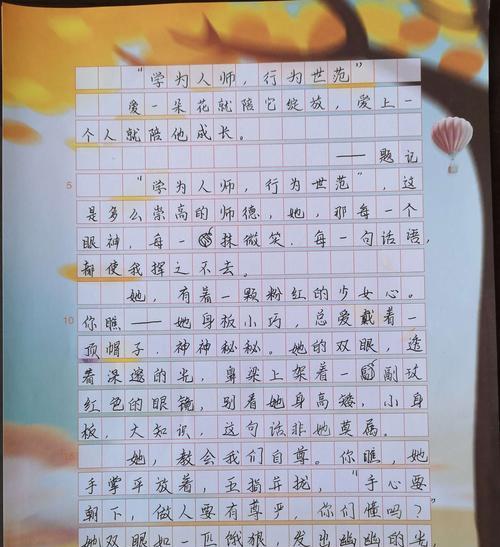 “学为人师，行为世范”
爱一朵花就陪它绽放，爱上一
个人就陪他成长。
——题记
5
“学为人师，行为世范”，这
是多么崇高的师德，她，那每一个
眼神，每一抹微笑．每一句话语，
都使我挥之不去。
她，有着一颗粉红的少女心。
10
你瞧——她身板小巧，总爱戴着一
顶帽子．神神秘秘。她的双眼，透
着深邃的光，鼻梁上架着一副玫
红色的眼镜，别看她身高矮，小身
板，大知识，这句话非她莫属。
15
她，教会我们自尊。你瞧，她
手掌平放着，五指并拢，“手心要
朝下，做人要有尊严，你们懂吗？”
她双眼如一匹饿狼，发出幽幽的光